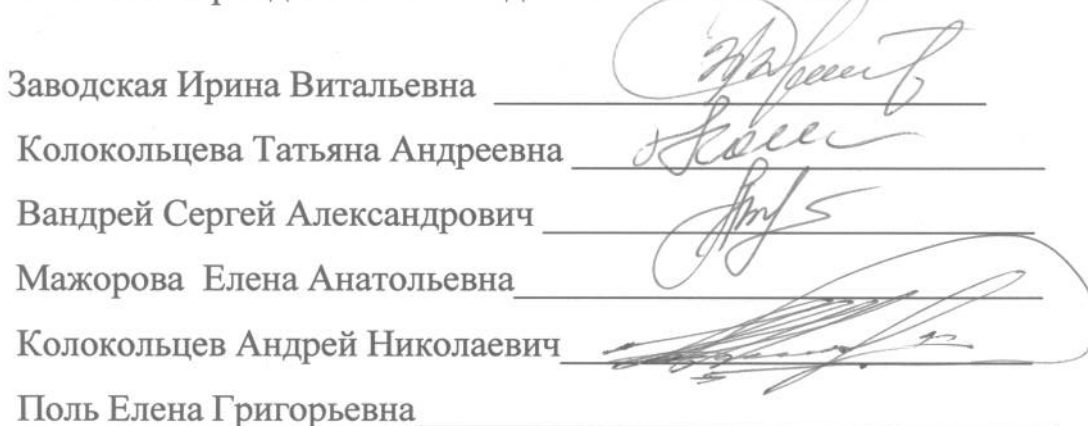 Заводская Ирина Витальевна
Колокольцева Татьяна Андреевна
Вандрей Сергей Александрович
Мажорова Елена Анатольевна
Колокольцев Андрей Николаевич
Поль Елена Григорьевна